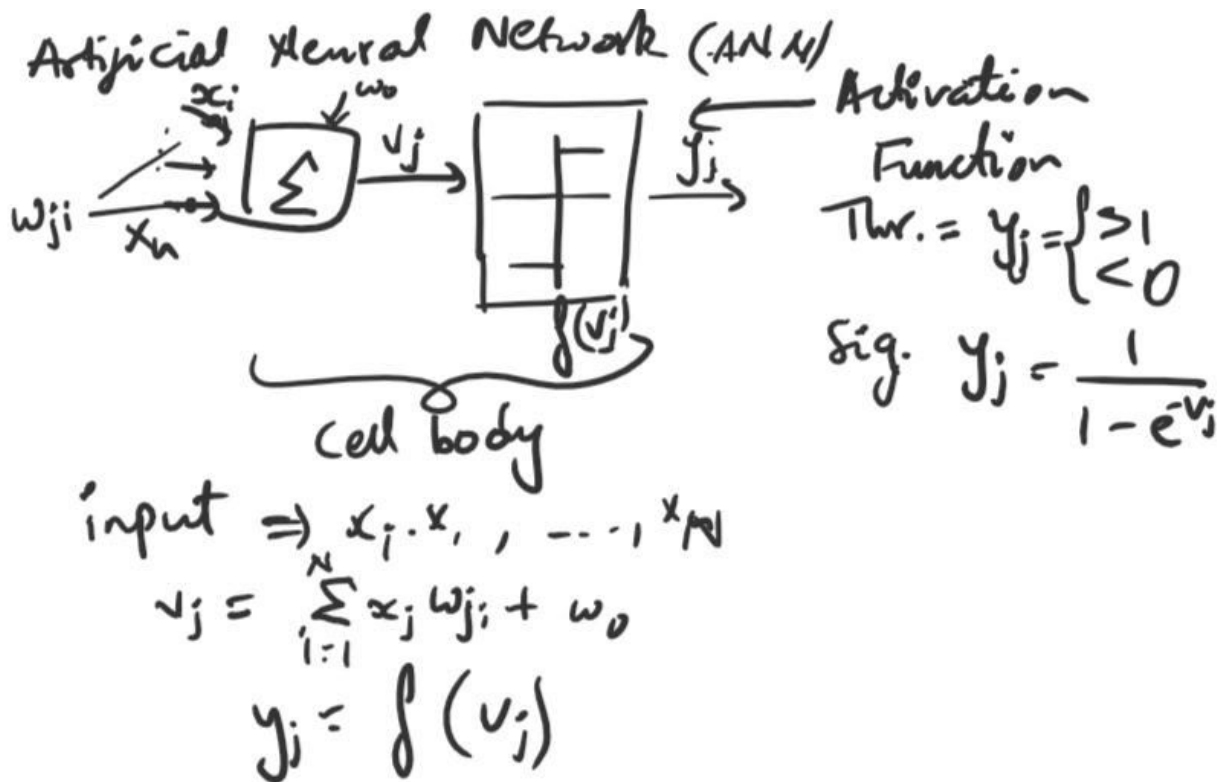 Artificial Neural Network (ANN)
x_i
w_0
w_ji
x_n
Σ
v_j
f(v_j)
y_j
Activation
Function
Thr. = y_j = { >1
< 0
Sig. y_j = 1 / (1 - e^-v_j)
Cell body
input ⇒ x_i . x_1 , ----, x_N
v_j = Σ_{i=1}^{N} x_j w_ji + w_0
y_j = f(v_j)